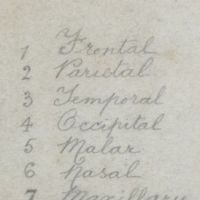 1 Frontal
2 Parietal
3 Temporal
4 Occipital
5 Malar
6 Nasal
7 Maxillary